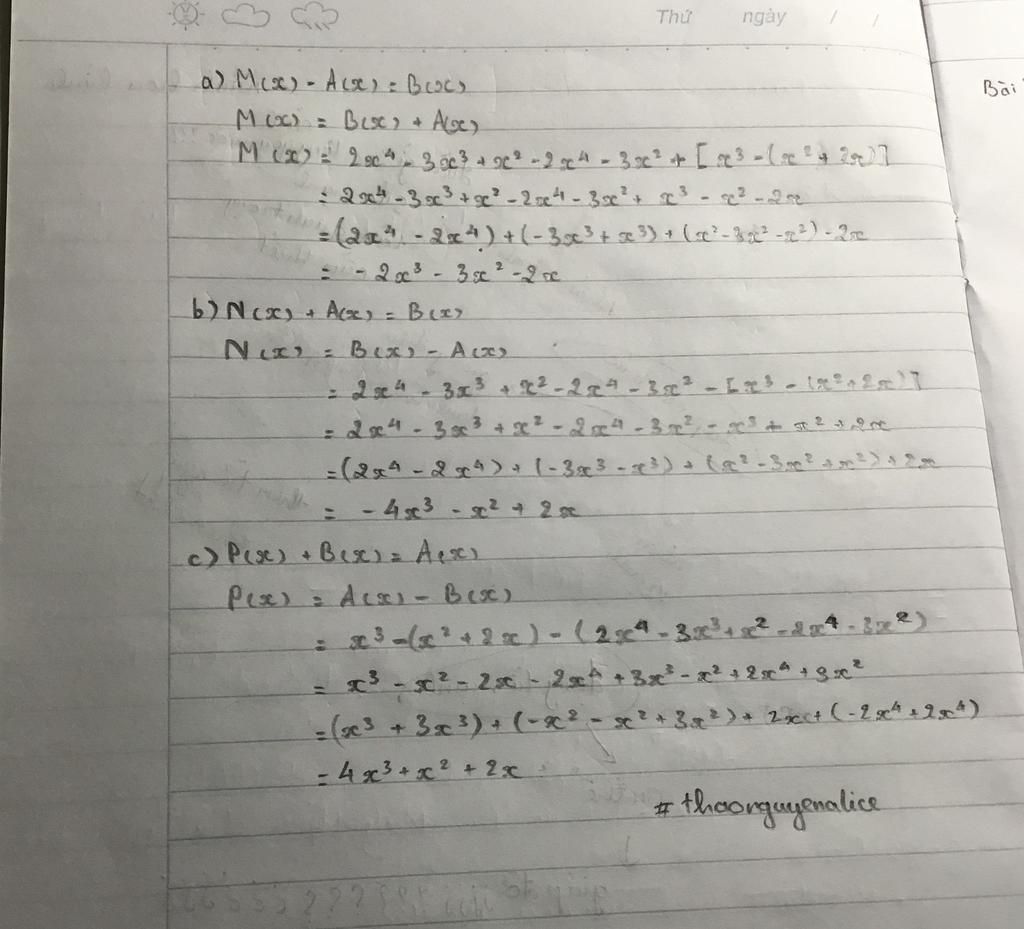 Thứ ngày / /
Bài
a) M(x) - A(x) = B(x)
M(x) = B(x) + A(x)
M(x) = 2x⁴ - 3x³ + x² - 2x⁴ - 3x² + [x³ - (x² + 2x)]
= 2x⁴ - 3x³ + x² - 2x⁴ - 3x² + x³ - x² - 2x
= (2x⁴ - 2x⁴) + (-3x³ + x³) + (x² - 3x² - x²) - 2x
= - 2x³ - 3x² - 2x
b) N(x) + A(x) = B(x)
N(x) = B(x) - A(x)
= 2x⁴ - 3x³ + x² - 2x⁴ - 3x² - [x³ - (x² + 2x)]
= 2x⁴ - 3x³ + x² - 2x⁴ - 3x² - x³ + x² + 2x
= (2x⁴ - 2x⁴) + (-3x³ - x³) + (x² - 3x² + x²) + 2x
= - 4x³ - x² + 2x
c) P(x) + B(x) = A(x)
P(x) = A(x) - B(x)
= x³ - (x² + 2x) - (2x⁴ - 3x³ + x² - 2x⁴ - 3x²)
= x³ - x² - 2x - 2x⁴ + 3x³ - x² + 2x⁴ + 3x²
= (x³ + 3x³) + (-x² - x² + 3x²) + 2x + (-2x⁴ + 2x⁴)
= 4x³ + x² + 2x
# thaonguyenalice